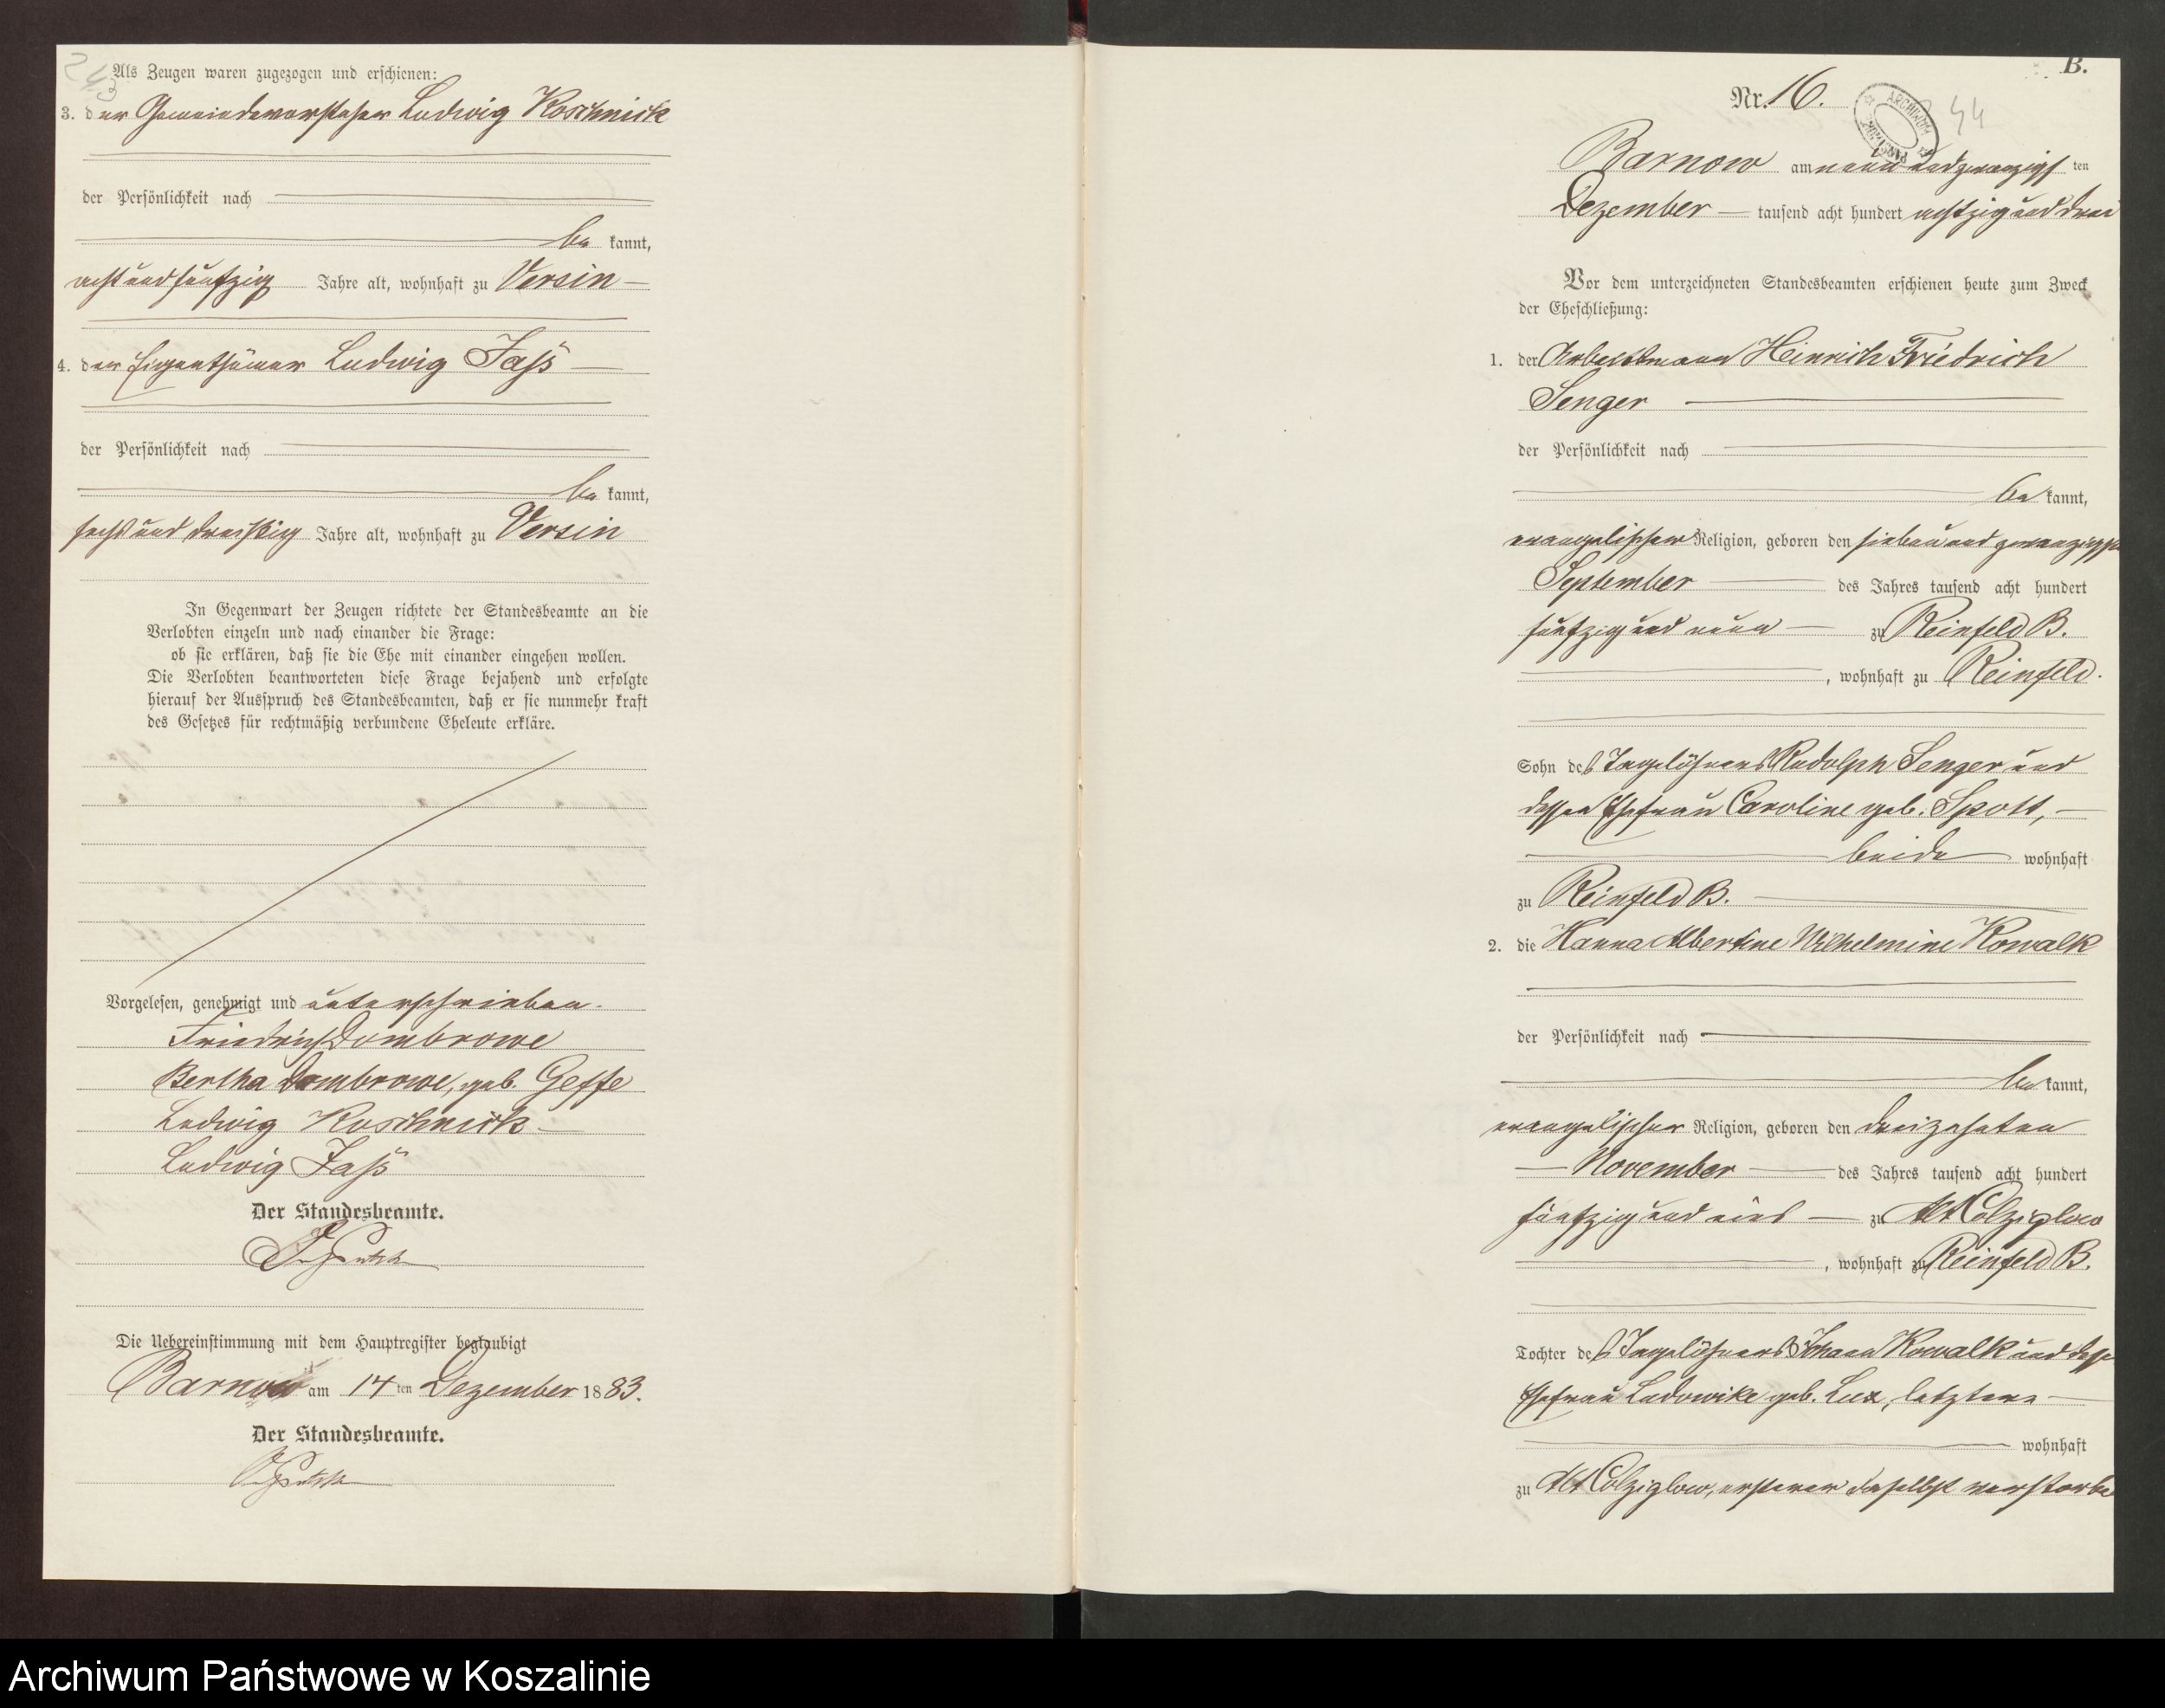 Als Zeugen waren zugezogen und erschienen:
3. der Gemeindevorsteher Ludwig Koschnick
der Persönlichkeit nach
be kannt,
acht und fünfzig Jahre alt, wohnhaft zu Versin
4. der Eigenthümer Ludwig Jaß
der Persönlichkeit nach
be kannt,
sechs und dreißig Jahre alt, wohnhaft zu Versin
In Gegenwart der Zeugen richtete der Standesbeamte an die
Verlobten einzeln und nach einander die Frage:
ob sie erklären, daß sie die Ehe mit einander eingehen wollen.
Die Verlobten beantworteten diese Frage bejahend und erfolgte
hierauf der Ausspruch des Standesbeamten, daß er sie nunmehr kraft
des Gesetzes für rechtmäßig verbundene Eheleute erkläre.
Vorgelesen, genehmigt und unterschrieben.
Friedrich Dombrowe
Bertha Dombrowe, geb. Geffe
Ludwig Koschnick
Ludwig Jaß
Der Standesbeamte.
Die Uebereinstimmung mit dem Hauptregister beglaubigt
Barnow am 14 ten Dezember 1883.
Der Standesbeamte.
B.
Nr. 16.
44
ARCHIWUM
Barnow am neun und zwanzigs ten
Dezember tausend acht hundert achtzig und drei
Vor dem unterzeichneten Standesbeamten erschienen heute zum Zweck
der Eheschließung:
1. der Arbeitsmann Heinrich Friedrich
Senger
der Persönlichkeit nach
be kannt,
evangelischer Religion, geboren den sieben und zwanzigsten
September des Jahres tausend acht hundert
fünfzig und neun zu Reinfeld B.
, wohnhaft zu Reinfeld.
Sohn des Tagelöhners Rudolph Senger und
dessen Ehefrau Caroline geb. Spott,
beide wohnhaft
zu Reinfeld B.
2. die Hanna Albertine Wilhelmine Kowalk
der Persönlichkeit nach
be kannt,
evangelischer Religion, geboren den dreizehnten
November des Jahres tausend acht hundert
fünfzig und eins zu Alt Colziglow
, wohnhaft zu Reinfeld B.
Tochter des Tagelöhners Johann Kowalk und dessen
Ehefrau Ludowike geb. Lux, letztere
wohnhaft
zu Alt Colziglow, ersterer daselbst verstorbe
Archiwum Państwowe w Koszalinie